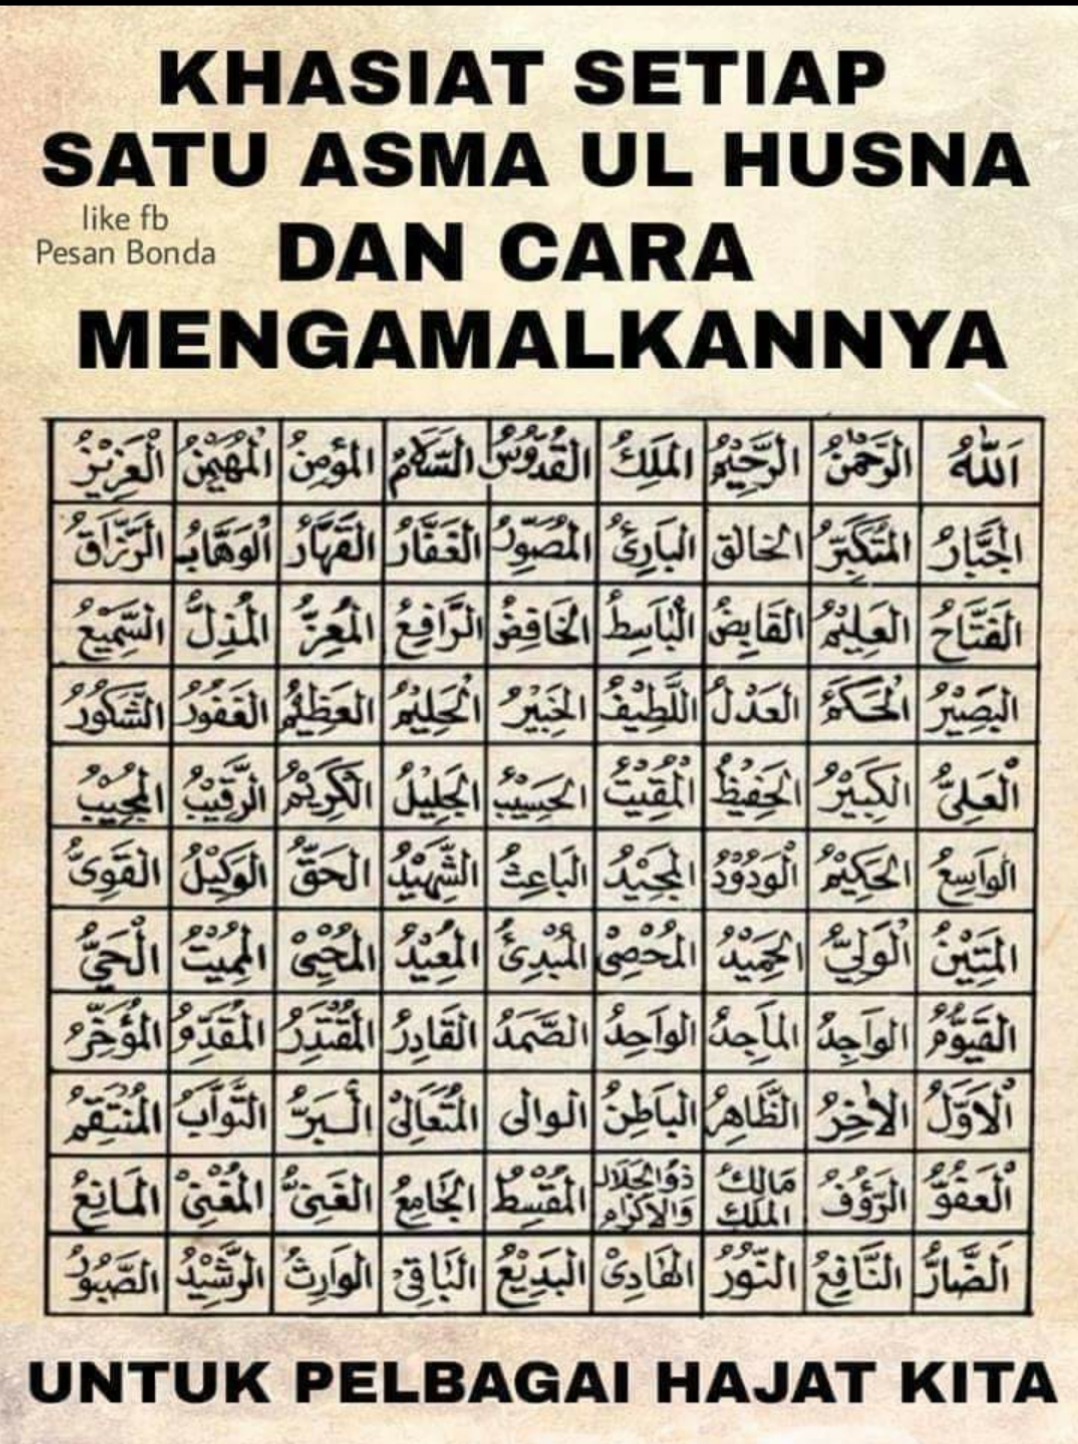 KHASIAT SETIAP
SATU ASMA UL HUSNA
like fb
Pesan Bonda
DAN CARA
MENGAMALKANNYA
اَللّٰهُ الرَّحْمٰنُ الرَّحِيْمُ المَلِكُ القُدُّوْسُ السَّلَامُ المُؤمِنُ الْمُهَيْمِنُ الْعَزِيْزُ
الْجَبَّارُ المُتَكَبِّرُ الخالق البَارِئُ الْمُصَوِّرُ الغَفَّارُ القَهَّارُ الْوَهَّابُ الرَّزَّاقُ
الفَتَّاحُ العَلِيْمُ القَابِضُ الْبَاسِطُ الْخَافِضُ الرَّافِعُ الْمُعِزُّ الْمُذِلُّ السَّمِيْعُ
البَصِيْرُ الْحَكَمُ العَدْلُ اللَّطِيْفُ الخَبِيْرُ الْحَلِيْمُ العَظِيْمُ الغَفُوْرُ الشَّكُوْرُ
الْعَلِىُّ الكَبِيْرُ الْحَفِيْظُ الْمُقِيْتُ الحَسِيْبُ الْجَلِيْلُ الْكَرِيْمُ الرَّقِيْبُ الْمُجِيْبُ
الوَاسِعُ الْحَكِيْمُ الْوَدُوْدُ الْمَجِيْدُ الْبَاعِثُ الشَّهِيْدُ الْحَقُّ الوَكِيْلُ الْقَوِىُّ
الْمَتِيْنُ الْوَلِيُّ الْحَمِيْدُ الْمُحْصِى الْمُبْدِئُ الْمُعِيْدُ الْمُحْيِىْ الْمُمِيْتُ الْحَيُّ
القَيُّوْمُ الوَاجِدُ المَاجِدُ الوَاحِدُ الصَّمَدُ القَادِرُ الْمُقْتَدِرُ الْمُقَدِّمُ الْمُؤَخِّرُ
الْاَوَّلُ الْاٰخِرُ الظَّاهِرُ البَاطِنُ الوالى الْمُتَعَالِىْ الْبَرُّ التَّوَّابُ الْمُنْتَقِمُ
الْعَفُوُّ الرَّؤُوْفُ مَالِكُ الْمُلْكُ ذُوالْجَلَالِ وَالْاِكْرَامِ الْمُقْسِطُ الْجَامِعُ الغَنِىُّ الْمُغْنِىْ الْمَانِعُ
اَلضَّارُّ النَّافِعُ النُّوْرُ الْهَادِىْ البَدِيْعُ الْبَاقِىْ الوَارِثُ الرَّشِيْدُ الصَّبُوْرُ
UNTUK PELBAGAI HAJAT KITA